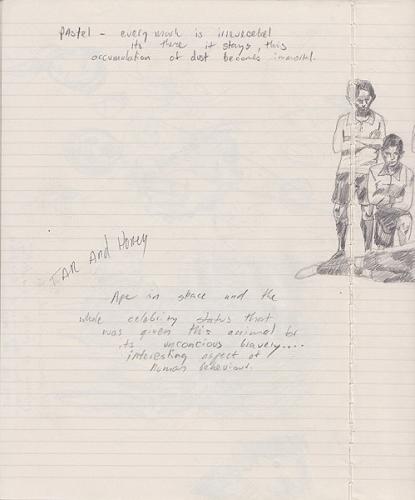 PASTEL - every mark is irrevocebel
its there it stays, this
accumulation of dust becomes immortal.
TAR AND HONEY
Ape in space and the
whole celebrity status that
was given this animal for
its unconcious bravery....
interesting aspect of
human behaviour.